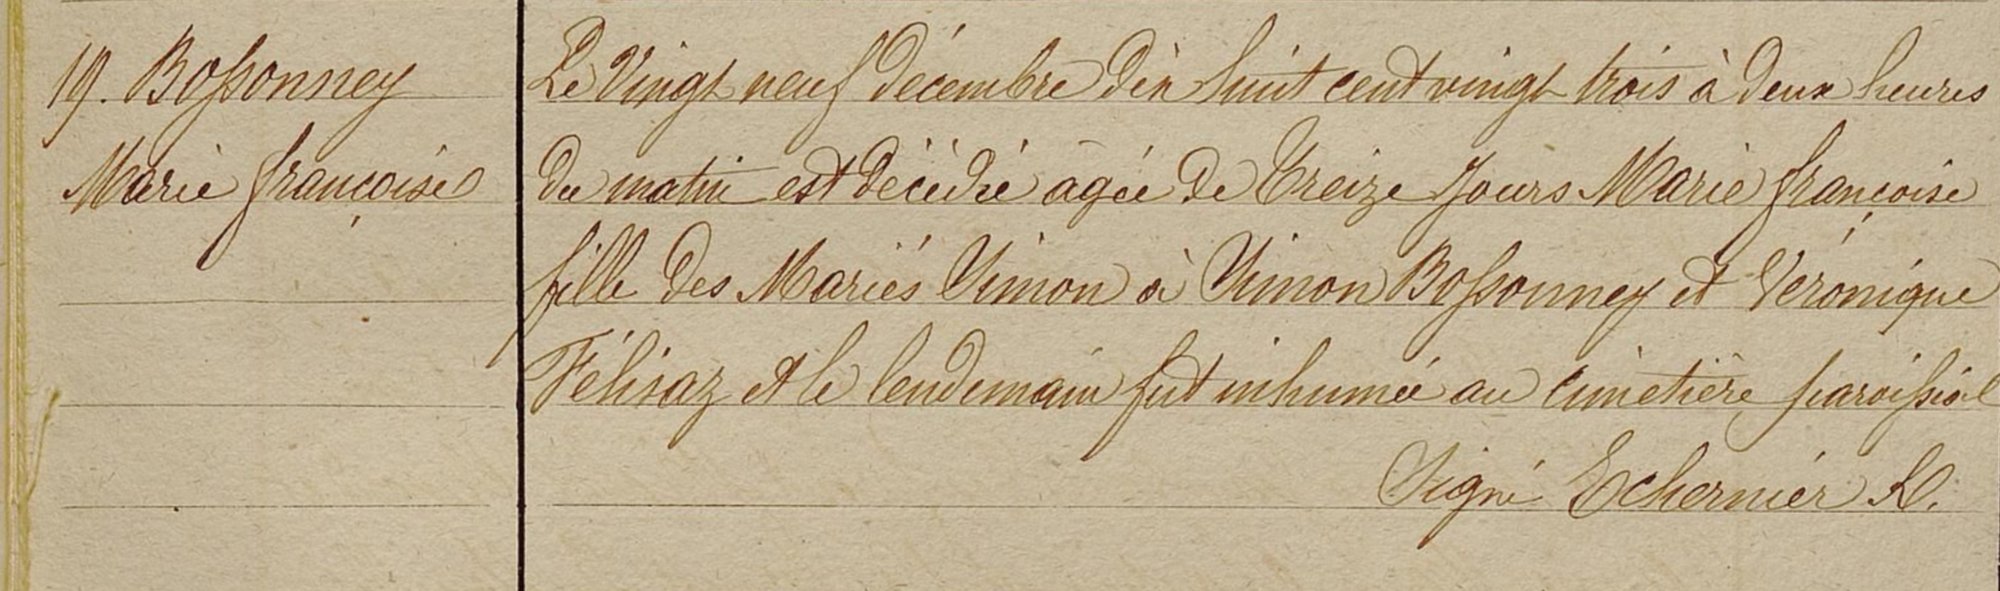 19. Bossonney
Marie françoise
Le Vingt neuf décembre dix huit cent vingt trois à deux heures
du matin est décédée agée de Treize Jours Marie françoise
fille des Mariés Simon à Simon Bossonney et Véronique
Félisaz et le lendemain fut inhumée au cimetière paroissial
Signé Echernier R.